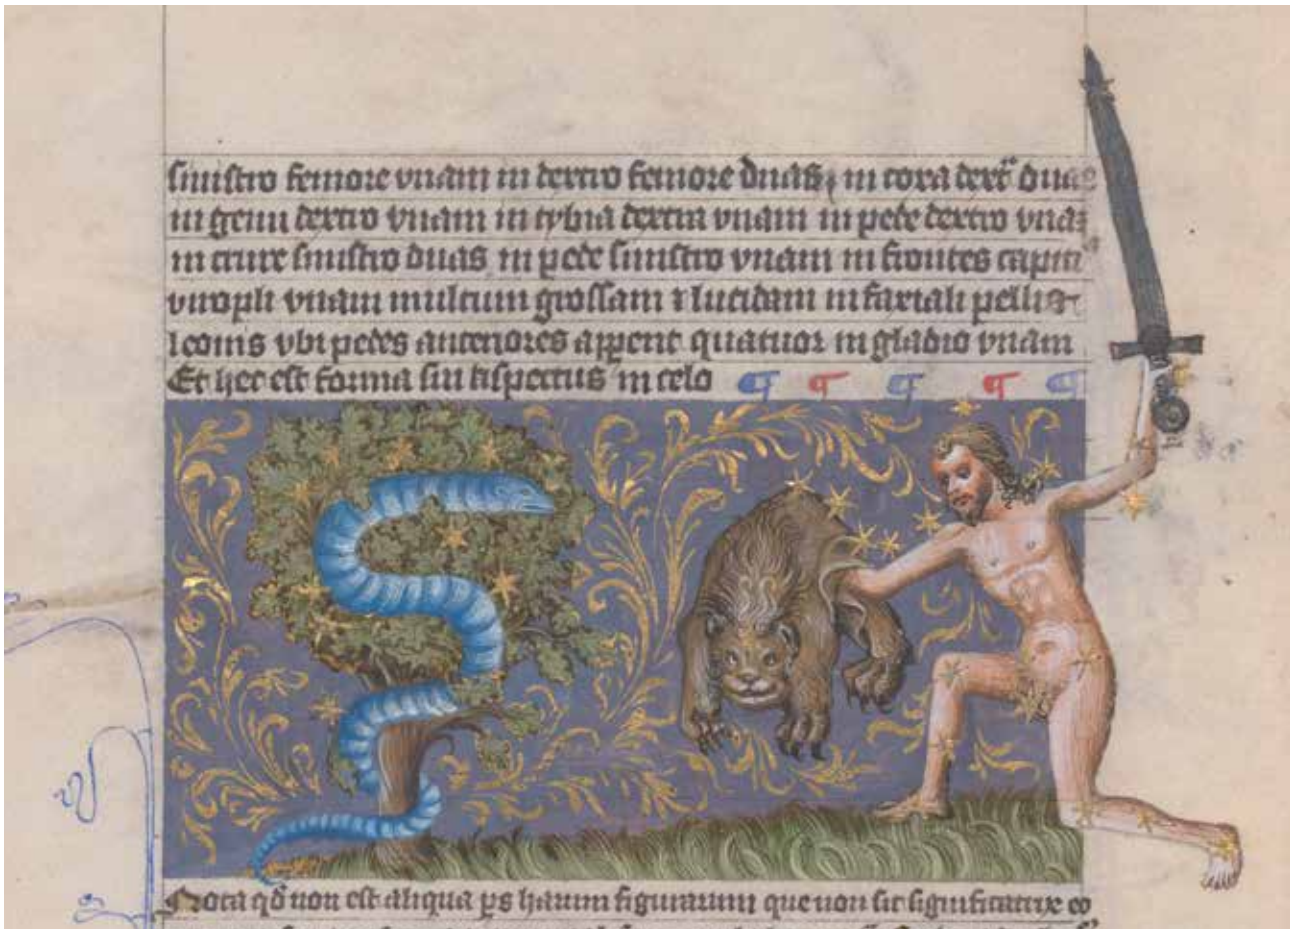 sinistro femore vnam in dextro femore duas in coxa dext duas
in genu dextro vnam in tybia dextra vnam in pede dextro vnā
in crure sinistro duas in pede sinistro vnam in frontes capitis
vnam multum grossam ⁊ lucidam in pellis
leonis vbi pedes anteriores apꝑent quatuor in gladio vnam
Et hec est forma sui aspectus in celo
Nota qđ non est aliqua ꝑs harum figurarum que non sit significatrix eo